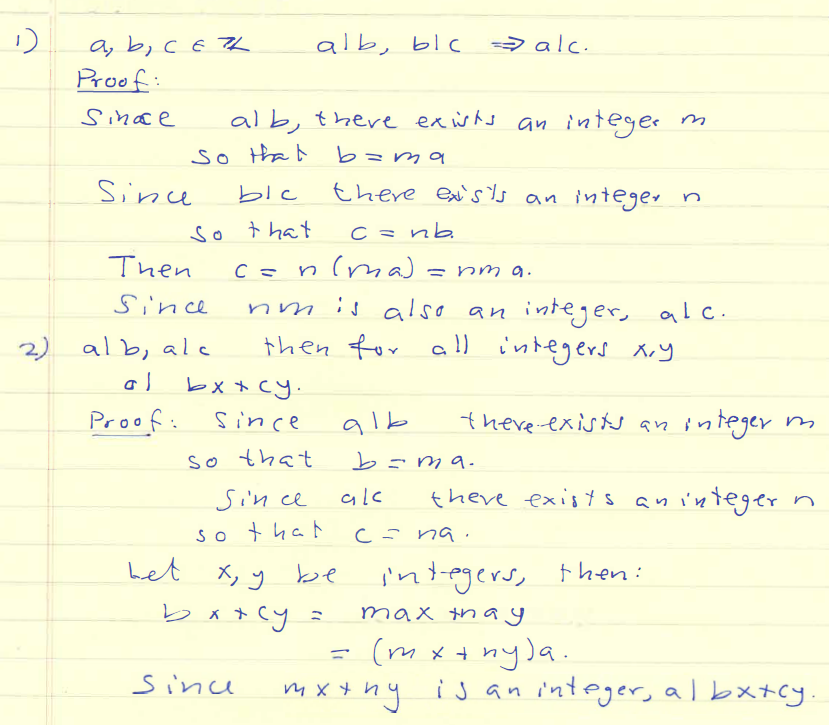 1) a, b, c ∈ ℤ a|b, b|c ⇒ a|c.
Proof:
Since a|b, there exists an integer m
so that b = ma
Since b|c there exists an integer n
so that c = nb.
Then c = n(ma) = nma.
Since nm is also an integer, a|c.
2) a|b, a|c then for all integers x,y
a| bx+cy.
Proof: Since a|b there exists an integer m
so that b = ma.
Since a|c there exists an integer n
so that c = na.
Let x, y be integers, then:
bx+cy = max + nay
= (mx+ny)a.
Since mx+ny is an integer, a|bx+cy.